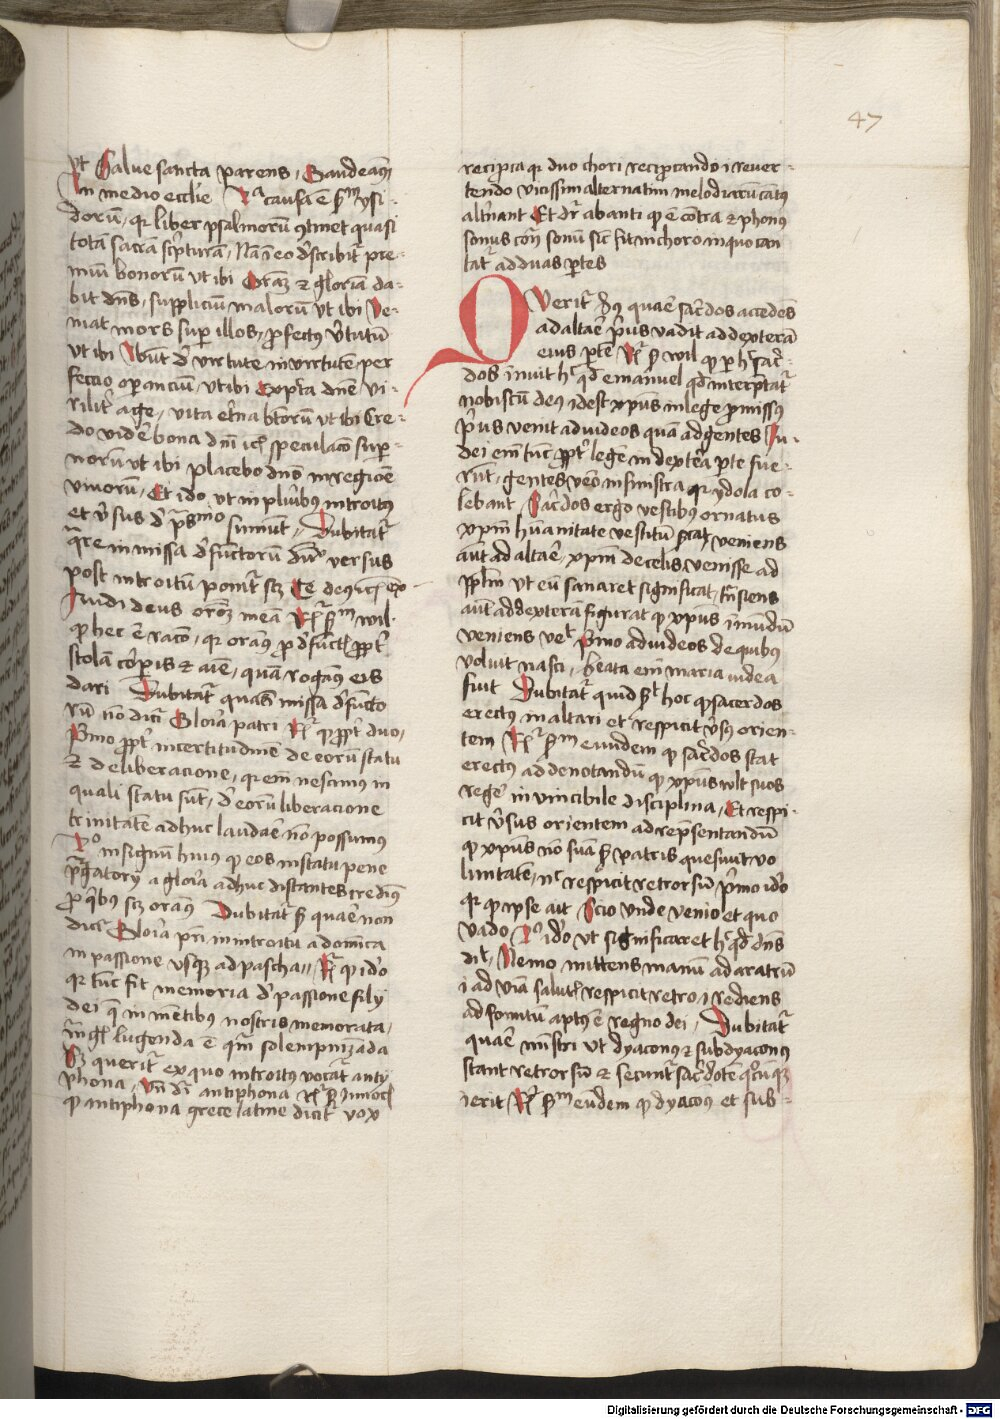 47
vt Salue sancta parens, Gaudeam9
In medio eccl̄ie Rᵃ causa ē s̄m ysi-
dorū, qr liber psalmorū 9tinet quasi
totā sacrā scr̄pturā, Nā ī eo d̓scribit̓ pre-
miū bonorū vt ibi Grām ⁊ gloriā da-
bit dn̄s, suppliciū malorū vt ibi Ve-
niat mors super illos, profect9 v̓tutū
vt ibi Ibūt de virtute in virtutē per
feccio operanciū, vt ibi Expc̄ta dn̄e vi-
rilit̓ age, vita et̓na btōrū vt ibi Cre-
do vidē bona dn̄i speculacō super-
norū vt ibi placebo dn̄o in regiōe
viuorū, Et ido vt in plurib9 introit9
et v̓sus de ps̄mo sumūt, Dubitat̓
qre in missa d̓functorū versus
post introitū ponit̓ scz Te decet
Exaudi deus orōem meā Rᵉ s̄m wil-
qp hec ē racō, qr oram9 pro d̓functis propt̓
stolā corporis ⁊ aīe, quā rogam9 eis
dari Dubitat̓ quare missa d̓functo
rū nō dicit̓ Gloria patri Rᵉ qp propt̓ duo,
Primo propt̓ incertitudinē de eorū statu
⁊ deliberacione, qr enī nescim9 in
quali statu sūt, de eorū liberacione
trinitatē adhuc laudare nō possum9
2º in signū hui9 qp eos in statu pene
purgatorij a gloria adhuc distantes credim9
pro qb9 scz oram9 Dubitat̓ quare non
dicit̓ Gloria pri in introitu a domīca
in passione vsqz ad pascha, Rᵉ qp ido
qr tūc fit memoria de passione filij
dei q̄ in mētib9 nostris memorata,
magis lugenda ē qm solempnizāda
Sz querit̓ ex quo introit9 vocat̓ anty
phona, vn̄ dr̄ antiphona Rᵉ s̄ Innocē
qp antiphona grece latine dicit̓ vox
recipr̄ca qr duo chori recipr̄cando i reuer-
tendo vicissim alternatim melodiarū cāt9
alt̓nant Et dr̄ ab anti qp ē cōtra ⁊ phon9
sonus contra sonū sic̄ fit in choro in quo can
tat̓ ad duas partes
QVerit̓ quare sacerdos accedēs
ad altare pri9 vadit ad dexterā
eius partē Rᵉ s̄ wil qp per h̄ sacer-
dos innuit h̄ qd emanuel qd interpretat̓
nobiscū deus id est xpūs in lege promiss9
pri9 venit ad iudeos quā ad gentes Iu-
dei enī tūc propt̓ legē in dext̓a parte fue-
rūt, gentes vero in sinistra qr ydola co-
lebant, Sacerdos ergo vestib9 ornatus
xpm hūanitate vestitū veniens
aūt ad altare, xpm de celis venisse ad
pplm vt eū sanaret significat, trāsiens
aūt ad dexterā figurat qp xpūs ī mūdū
veniens primo ad iudeos de quib9
voluit nasci, beata enī maria iudea
fuit Dubitat̓ quid hoc qp sacerdos
erect9 in altari et respicit v̓s9 orien-
tem Rᵉ s̄m eundem qp sacerdos stat
erect9 ad denotandū qp xpūs wlt suos
rege in vincibile disciplina, Et respi-
cit v̓sus orientem ad represētandū
qp xpūs nō suā s̄ patris quesiuit vo
luntatē, nec respicit retrorsū primo ido
qr qp ipse ait Scio vnde venio et quo
vado 2º ido vt significaret h̄ qd dn̄s
dicit, Nemo mittens manū ad aratrū
i ad viā salutis respicit retro i rediens
ad fomitū apt9 ē regno dei, Dubitat̓
quare mīstri vt dyacon9 ⁊ subdyacon9
stant retrorsū ⁊ secunt̓ sacerdotē qcūqz
ierit Rᵉ s̄m eūdem qp dyacon9 et sub-
Digitalisierung gefördert durch die Deutsche Forschungsgemeinschaft - DFG